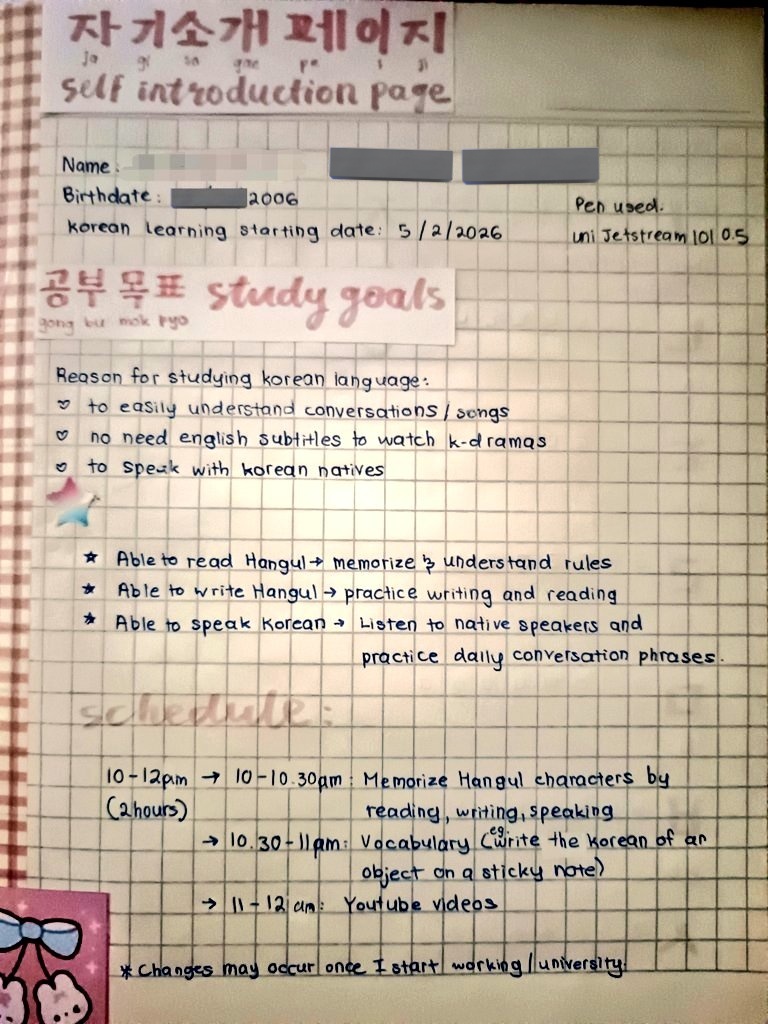 자기소개 페이지
ja gi so gae pe i ji
self introduction page
Name:
Birthdate: 2006
Korean learning starting date: 5/2/2026
Pen used:
uni Jetstream 101 0.5
공부 목표 study goals
gong bu mok pyo
Reason for studying korean language:
♡ to easily understand conversations/songs
♡ no need english subtitles to watch k-dramas
♡ to speak with korean natives
★ Able to read Hangul → memorize & understand rules
★ Able to write Hangul → practice writing and reading
★ Able to speak Korean → Listen to native speakers and
practice daily conversation phrases.
schedule:
10-12pm → 10-10.30am: Memorize Hangul characters by
(2hours) reading, writing, speaking
→ 10.30-11am: Vocabulary (eg. write the korean of an
object on a sticky note)
→ 11-12 am: Youtube videos
* Changes may occur once I start working/university.